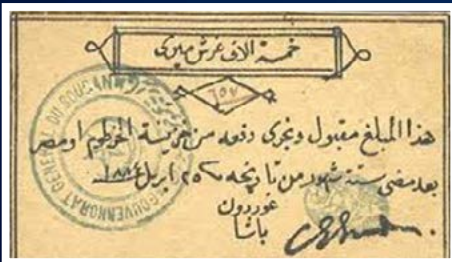 خمسة الاف غرش ميرى
٦٥٧
هذا المبلغ مقبول ويجرى دفعه من خزينة الخرطوم او مصر
بعد مضى ستة شهور من تاريخه ٢٥ ابريل ١٨٨٤
غوردون
باشا
GOUVERNORAT GENERAL DU SOUDAN